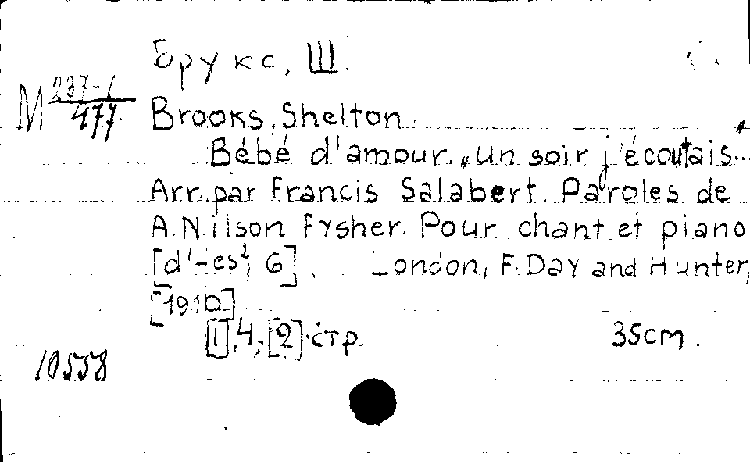 Брукс, Ш.
М 237-1/477
Brooks, Shelton.
Bébé d'amour. „Un soir j'écoutais...“
Arr. par Francis Salabert. Paroles de
A. Nilson Fysher. Pour chant et piano
[d'-es², G]. London, F. Day and Hunter,
[1910]
[1], 4, [2] стр. 35cm.
10558